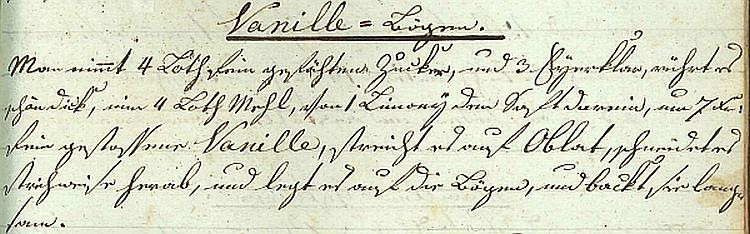 Vanille = Bögen.
Man nimmt 4 Loth fein gefähten Zucker, und 3 Eyerklar, rührt es
schön dick, nim 4 Loth Mehl, von 1 Limony den Saft darein, um 7 Xr:
fein gestossene Vanille, streicht es auf Oblat, schneidet es
strichweise herab, und legt es auf die Bögen, und backt sie lang-
sam.